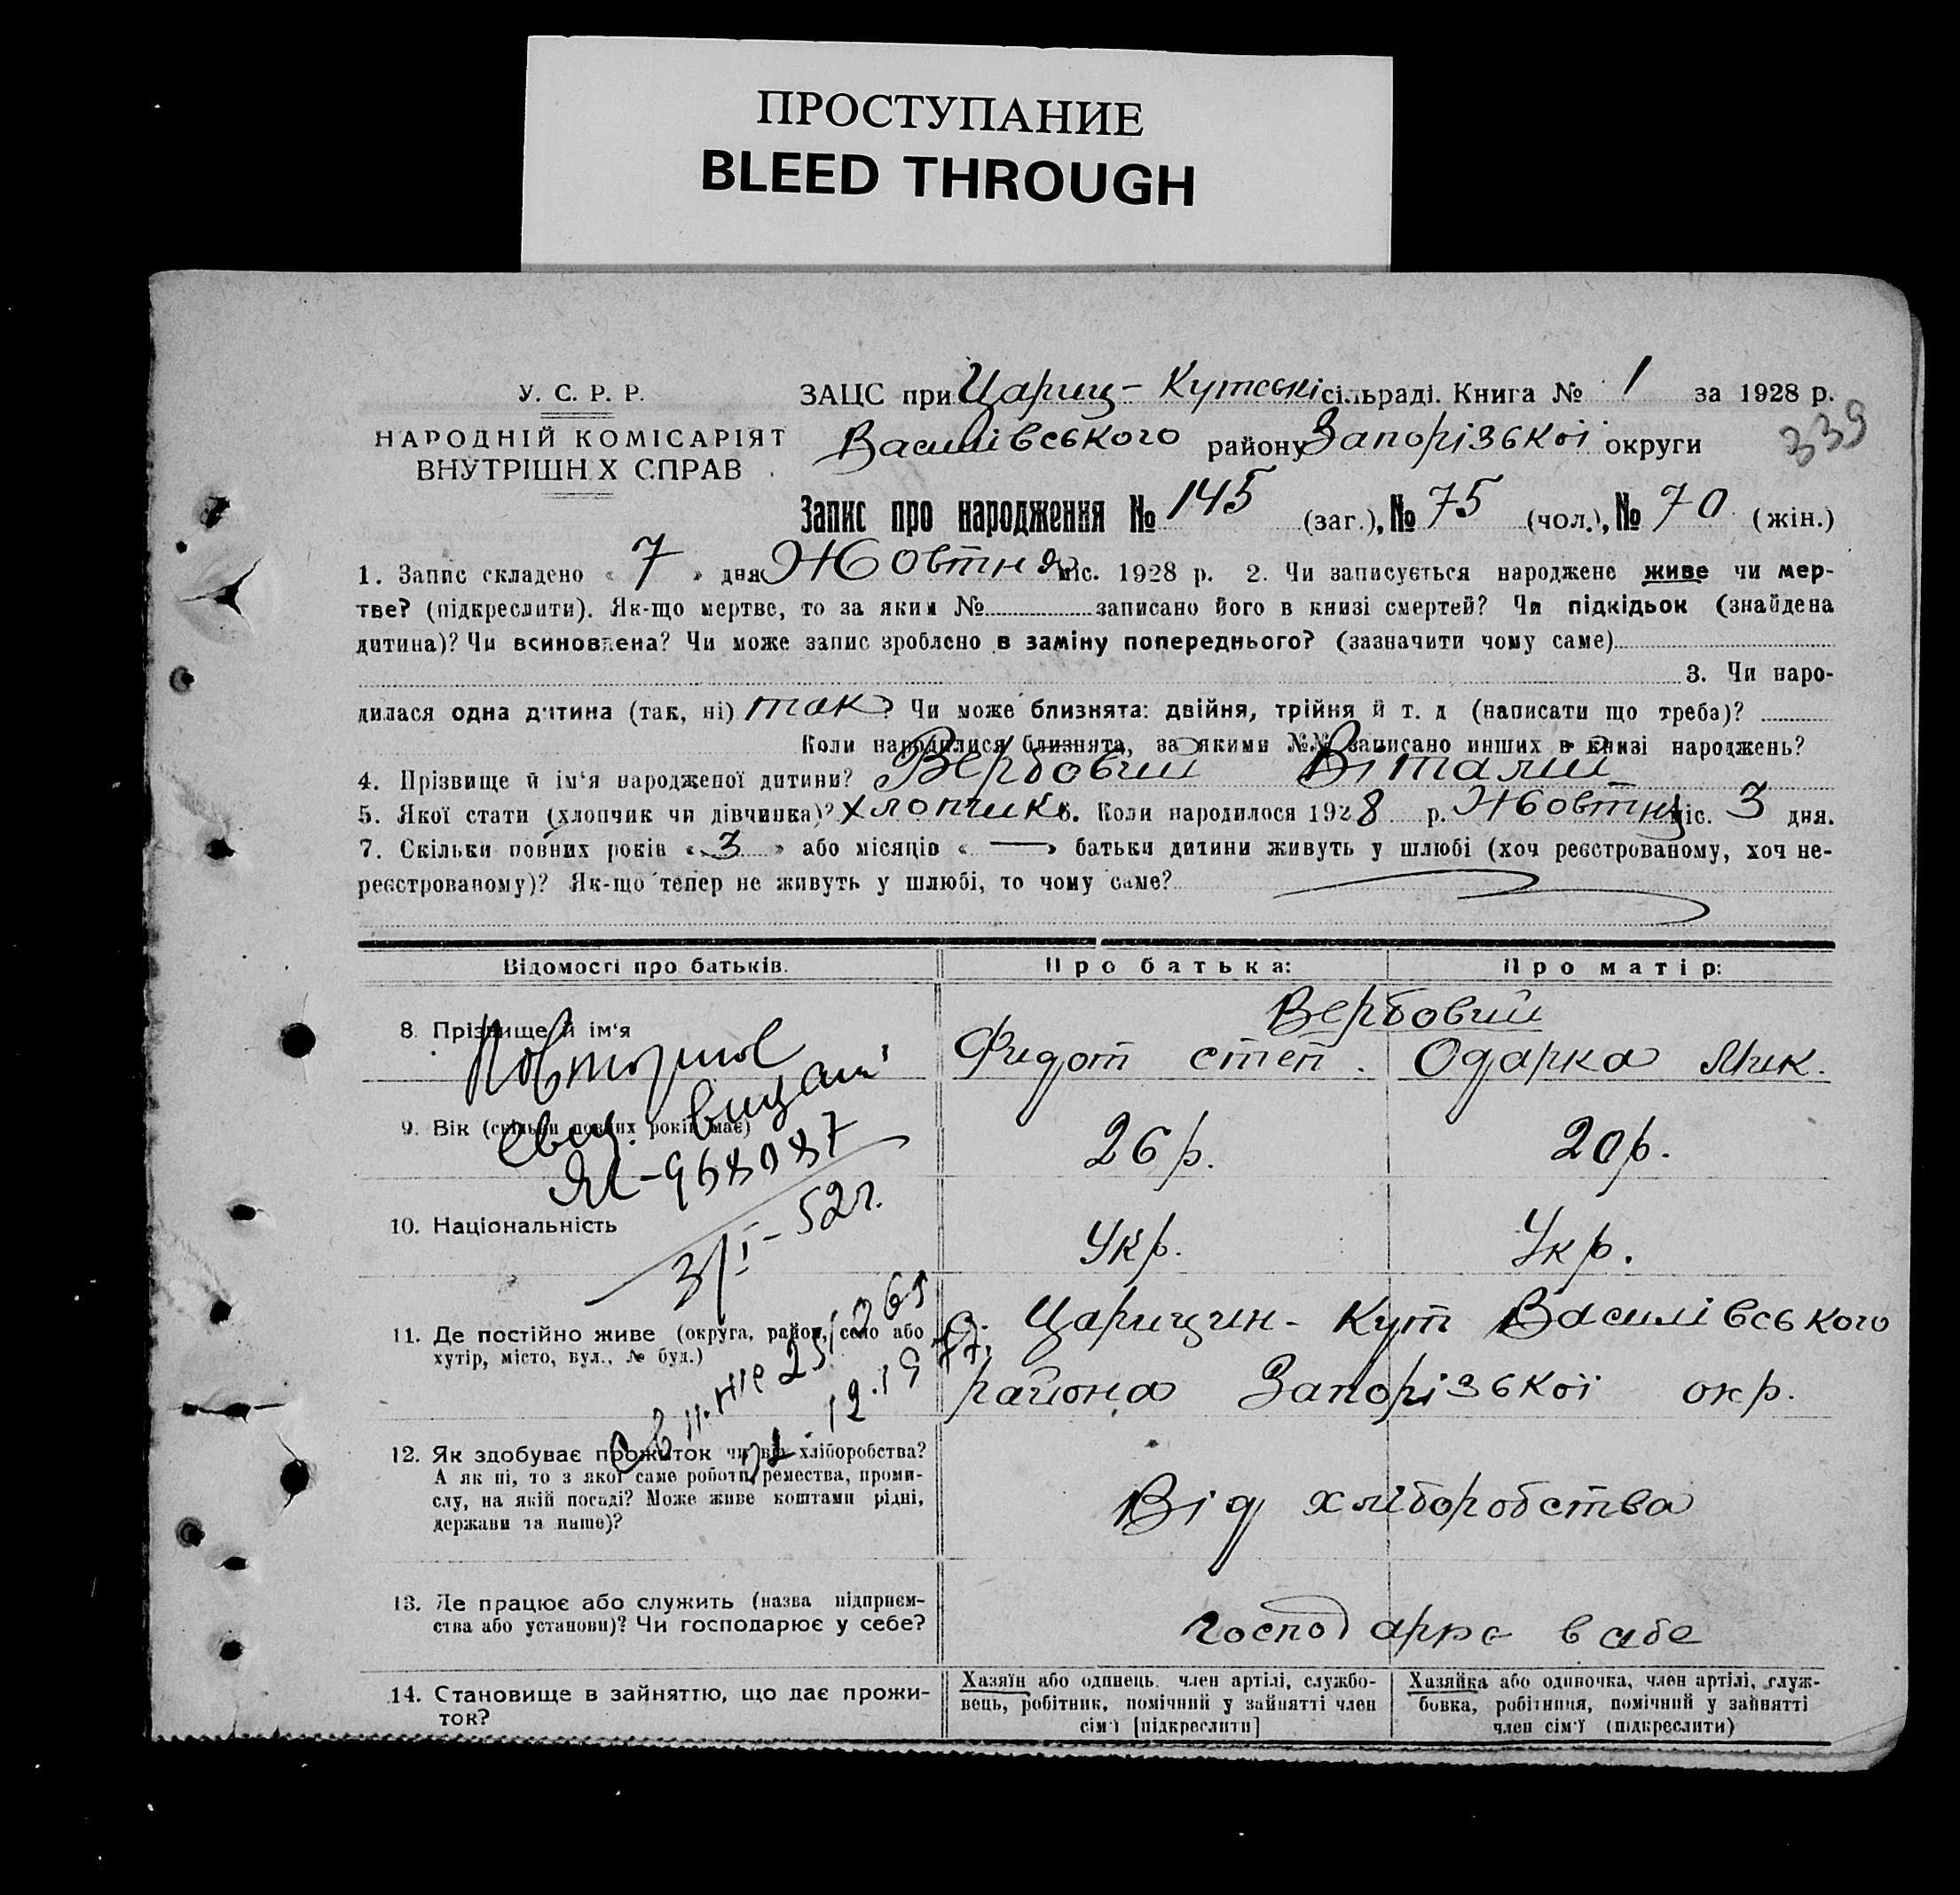 ПРОСТУПАНИЕ
BLEED THROUGH
У. С. Р. Р.
НАРОДНІЙ КОМІСАРІЯТ
ВНУТРІШН Х СПРАВ
ЗАЦС при Цариц-Кутській сільраді. Книга № 1 за 1928 р.
339
Василівського району Запорізької округи
Запис про народження № 145 (заг.), № 75 (чол.), № 70 (жін.)
1. Запис складено « 7 » дня Жовтня міс. 1928 р. 2. Чи записується народжене живе чи мер-
тве? (підкреслити). Як-що мертве, то за яким № записано його в книзі смертей? Чи підкідьок (знайдена
дитина)? Чи всиновлена? Чи може запис зроблено в заміну попереднього? (зазначити чому саме)
3. Чи наро-
дилася одна дитина (так, ні) так? Чи може близнята: двійня, трійня й т. д (написати що треба)?
Коли народилися близнята, за якими №№ записано инших в книзі народжень?
4. Прізвище й ім'я народженої дитини? Вербовий Віталий
5. Якої стати (хлопчик чи дівчинка)? хлопчик 6. Коли народилося 1928 р. Жовтня міс. 3 дня.
7. Скільки повних років « 3 » або місяців « — » батьки дитини живуть у шлюбі (хоч реєстрованому, хоч не-
реєстрованому)? Як-що тепер не живуть у шлюбі, то чому саме?
Відомості про батьків.
Про батька:
Про матір:
8. Прізвище й ім'я
Вербовий
Фидот Степ.
Одарка Мик.
Повторное
свид. выдан
9. Вік (скільки повних років має)
26 р.
20 р.
ЯІ-968087
3/I-52 г.
10. Національність
Укр.
Укр.
11. Де постійно живе (округа, район, село або
хутір, місто, вул., № буд.)
с. Царицин-Кут Василівського
района Запорізької окр.
12. Як здобуває прожиток чи від хліборобства?
А як ні, то з якої саме роботи, ремества, проми-
слу, на якій посаді? Може живе коштами рідні,
держави та инше)?
Від хліборобства
13. Де працює або служить (назва підприєм-
ства або установи)? Чи господарює у себе?
Господарює в себе
14. Становище в зайняттю, що дає прожи-
ток?
Хазяїн або одинець, член артілі, службо-
вець, робітник, помічний у зайнятті член
сім'ї [підкреслити]
Хазяйка або одиночка, член артілі, служ-
бовка, робітниця, помічний у зайнятті
член сім'ї (підкреслити)